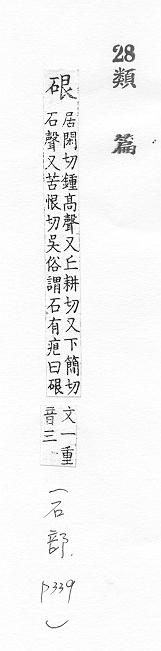 28
類篇
硍 居閑切鍾高聲又丘耕切又下簡切
石聲又苦恨切吳俗謂石有疤曰硍
文一重
音三
(石部. p339)